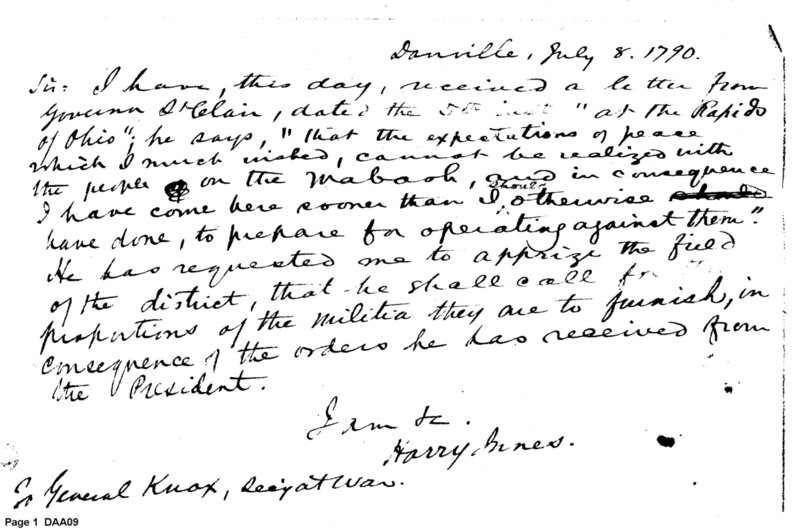 Danville, July 8. 1790.
Sir: I have, this day, received a letter from
Governor St Clair, dated the 5th inst "at the Rapids
of Ohio"; he says, "that the expectations of peace
which I much wished, cannot be realized with
the people on the Wabash, and in consequence
I have come here sooner than I should otherwise
have done, to prepare for operating against them".
He has requested me to apprize the field
of the district, that he shall call for
proportions of the militia they are to furnish, in
consequence of the orders he has received from
the President.
I am &c.
Harry Innes.
To General Knox, Secy at War.
Page 1 DAA09